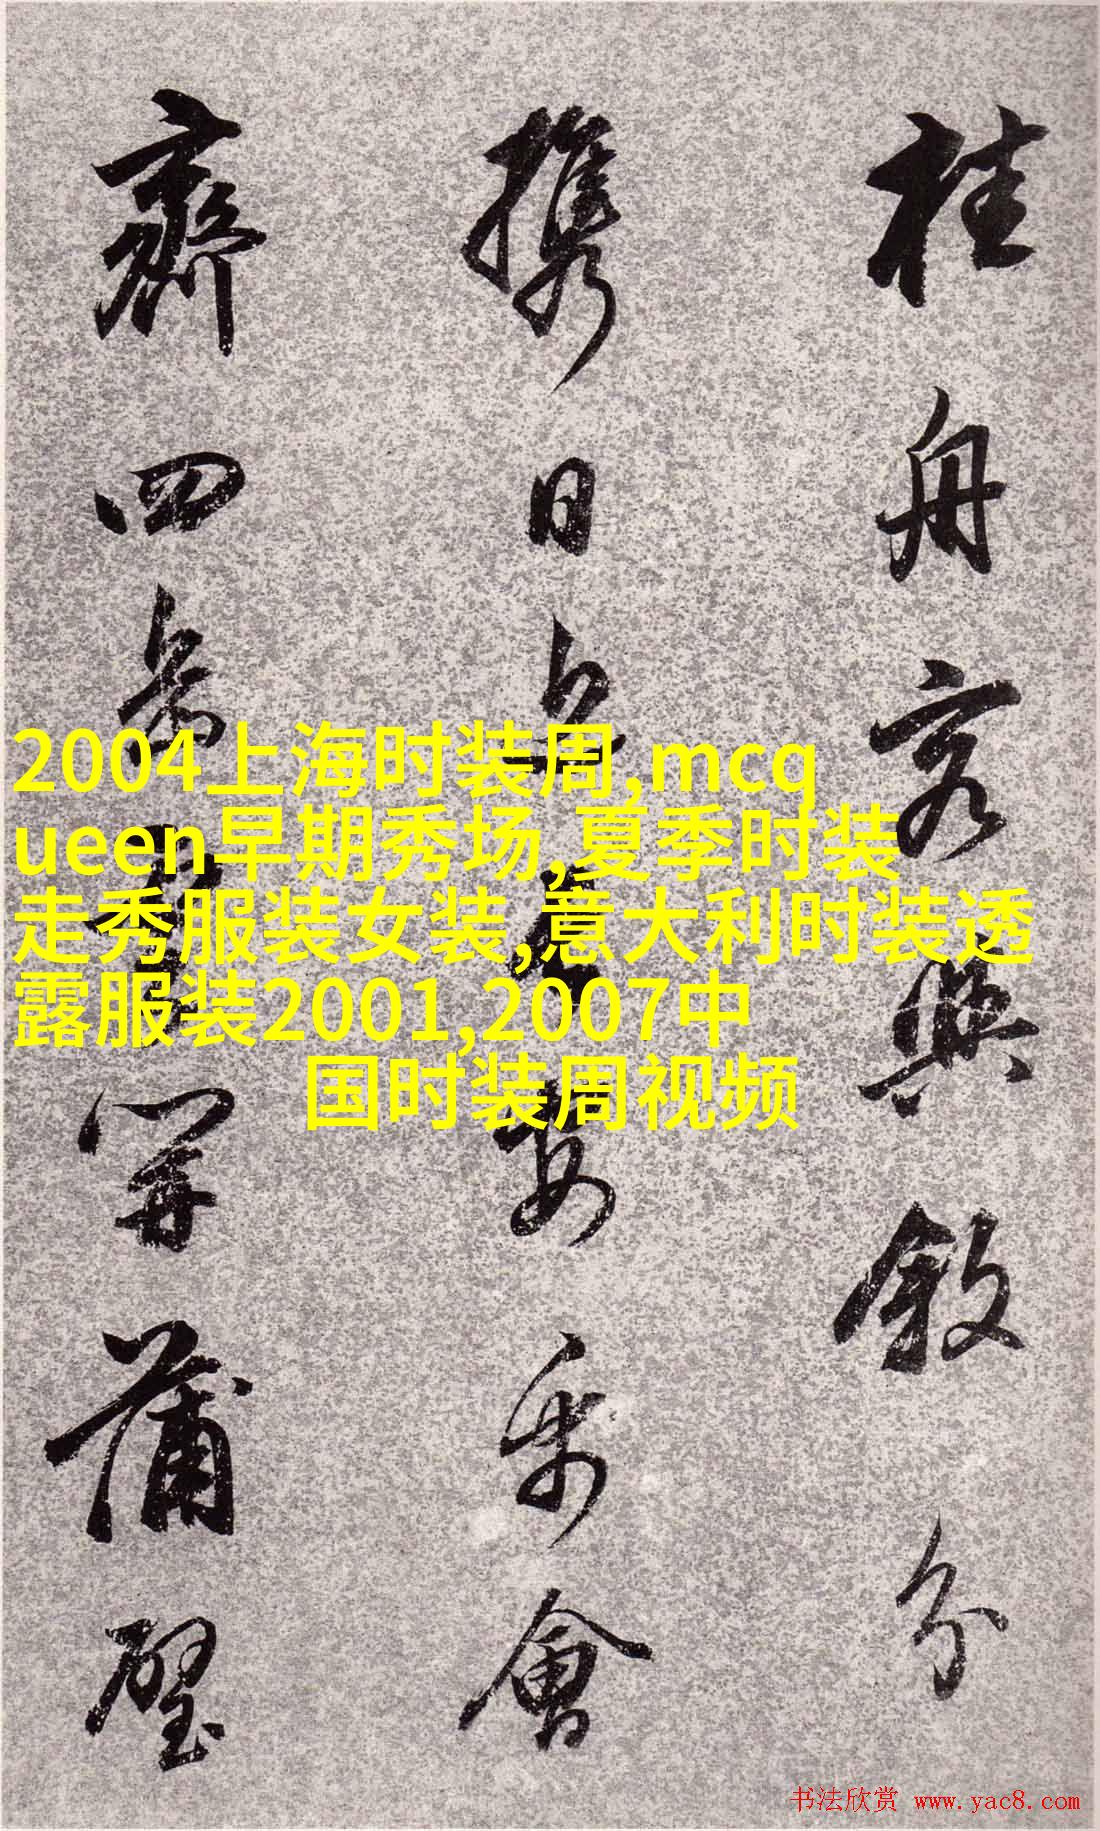 桂舟容與敘分
携日會
齊四開蒲璧
2004上海时装周,mcq
ueen早期秀场,夏季时装
走秀服装女装,意大利时装透
露服装2001,2007中
国时装周视频
书法欣赏 www.yac8.com